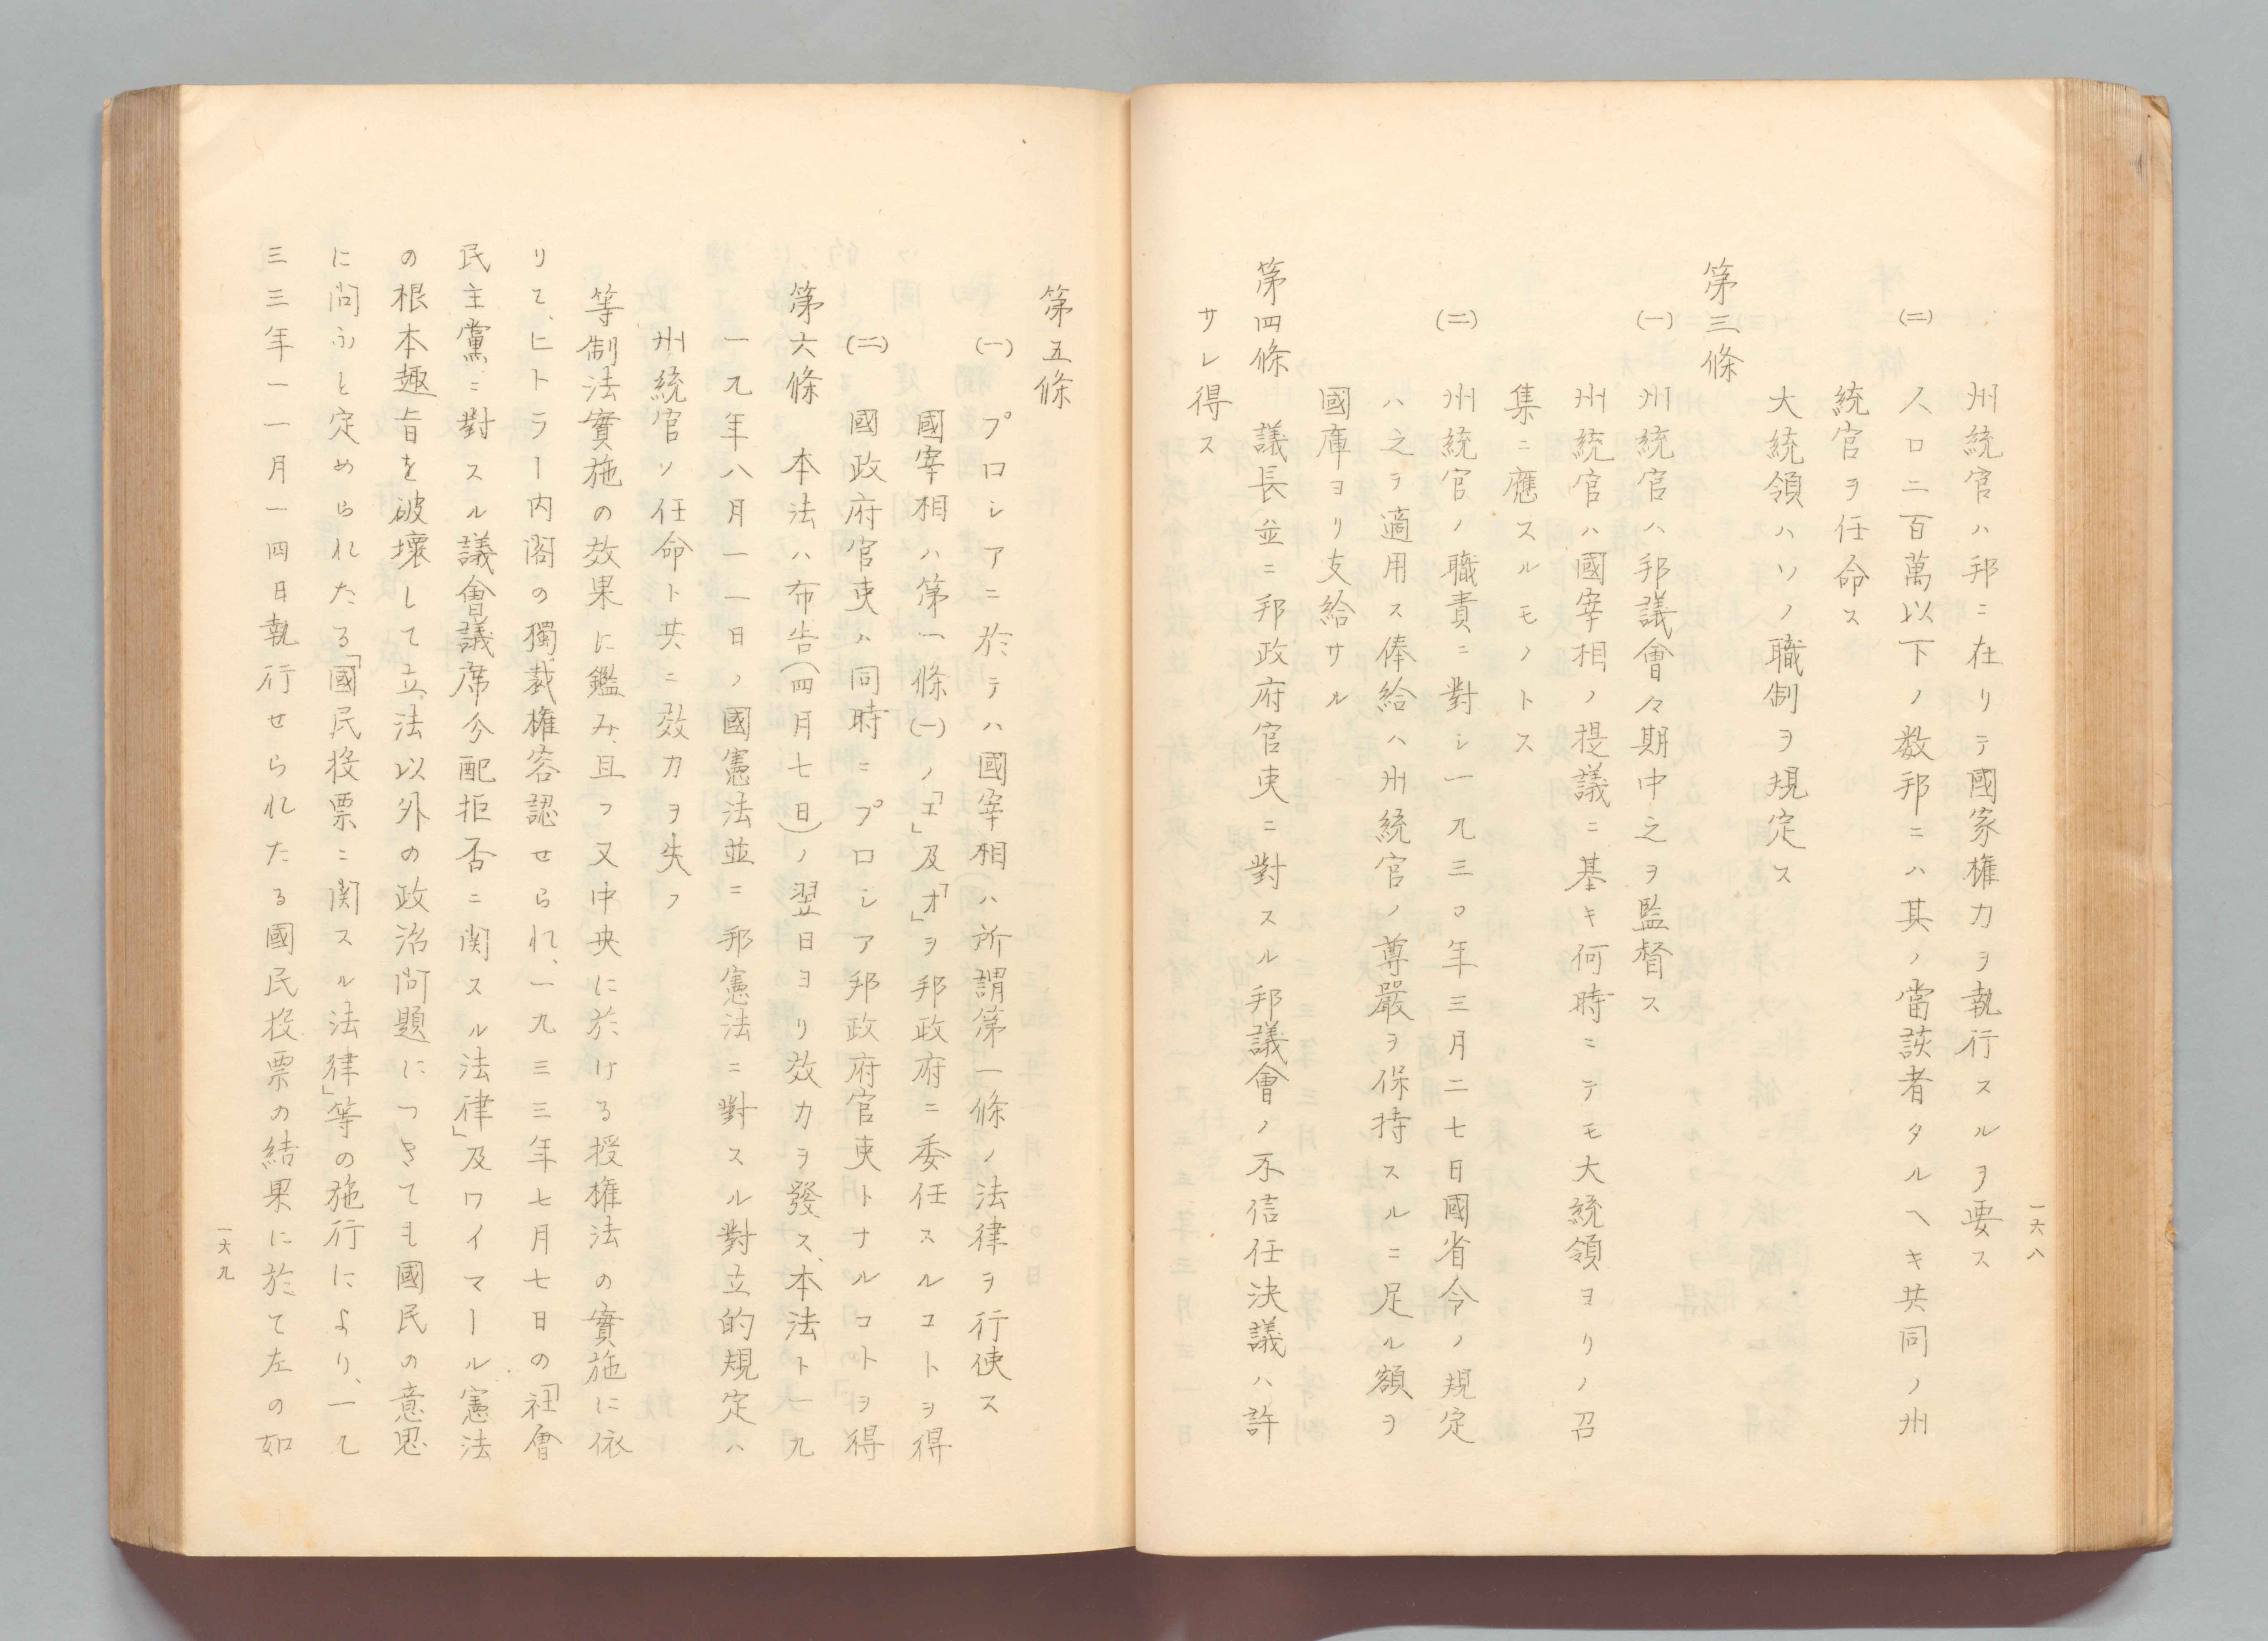 州統官ハ邦ニ在リテ國家権力ヲ執行スルヲ要ス
(二)
人口二百萬以下ノ数邦ニハ其ノ當該者タルヘキ共同ノ州
統官ヲ任命ス
大統領ハソノ職制ヲ規定ス
第三條
(一) 州統官ハ邦議會々期中之ヲ監督ス
州統官ハ國宰相ノ提議ニ基キ何時ニテモ大統領ヨリノ召
集ニ應スルモノトス
(二) 州統官ノ職責ニ對シ一九三〇年三月二七日國省令ノ規定
ハ之ヲ適用ス俸給ハ州統官ノ尊嚴ヲ保持スルニ足ル額ヲ
國庫ヨリ支給サル
第四條 議長並ニ邦政府官吏ニ對スル邦議會ノ不信任決議ハ許
サレ得ス
一六八
第五條
(一) プロシアニ於テハ國宰相ハ所謂第一條ノ法律ヲ行使ス
國宰相ハ第一條(一)ノ「エ」及「オ」ヲ邦政府ニ委任スルコトヲ得
(二) 國政府官吏ハ同時ニプロシア邦政府官吏トナルコトヲ得
第六條 本法ハ布告(四月七日)ノ翌日ヨリ效力ヲ發ス、本法ト一九
一九年八月一一日ノ國憲法並ニ邦憲法ニ對スル對立的規定ハ
州統官ソ任命ト共ニ效力ヲ失フ
等制法實施の效果に鑑み、且つ又中央に於ける授権法の實施に依
りて、ヒトラー内閣の獨裁権容認せられ、一九三三年七月七日の「社會
民主黨ニ對スル議會議席分配拒否ニ関スル法律」及ワイマール憲法
の根本趣旨を破壊して立法以外の政治問題につきても國民の意思
に問ふと定められたる「國民投票ニ関スル法律」等の施行により、一て
三三年一一月一四日執行せられたる國民投票の結果に於て左の如
一六九